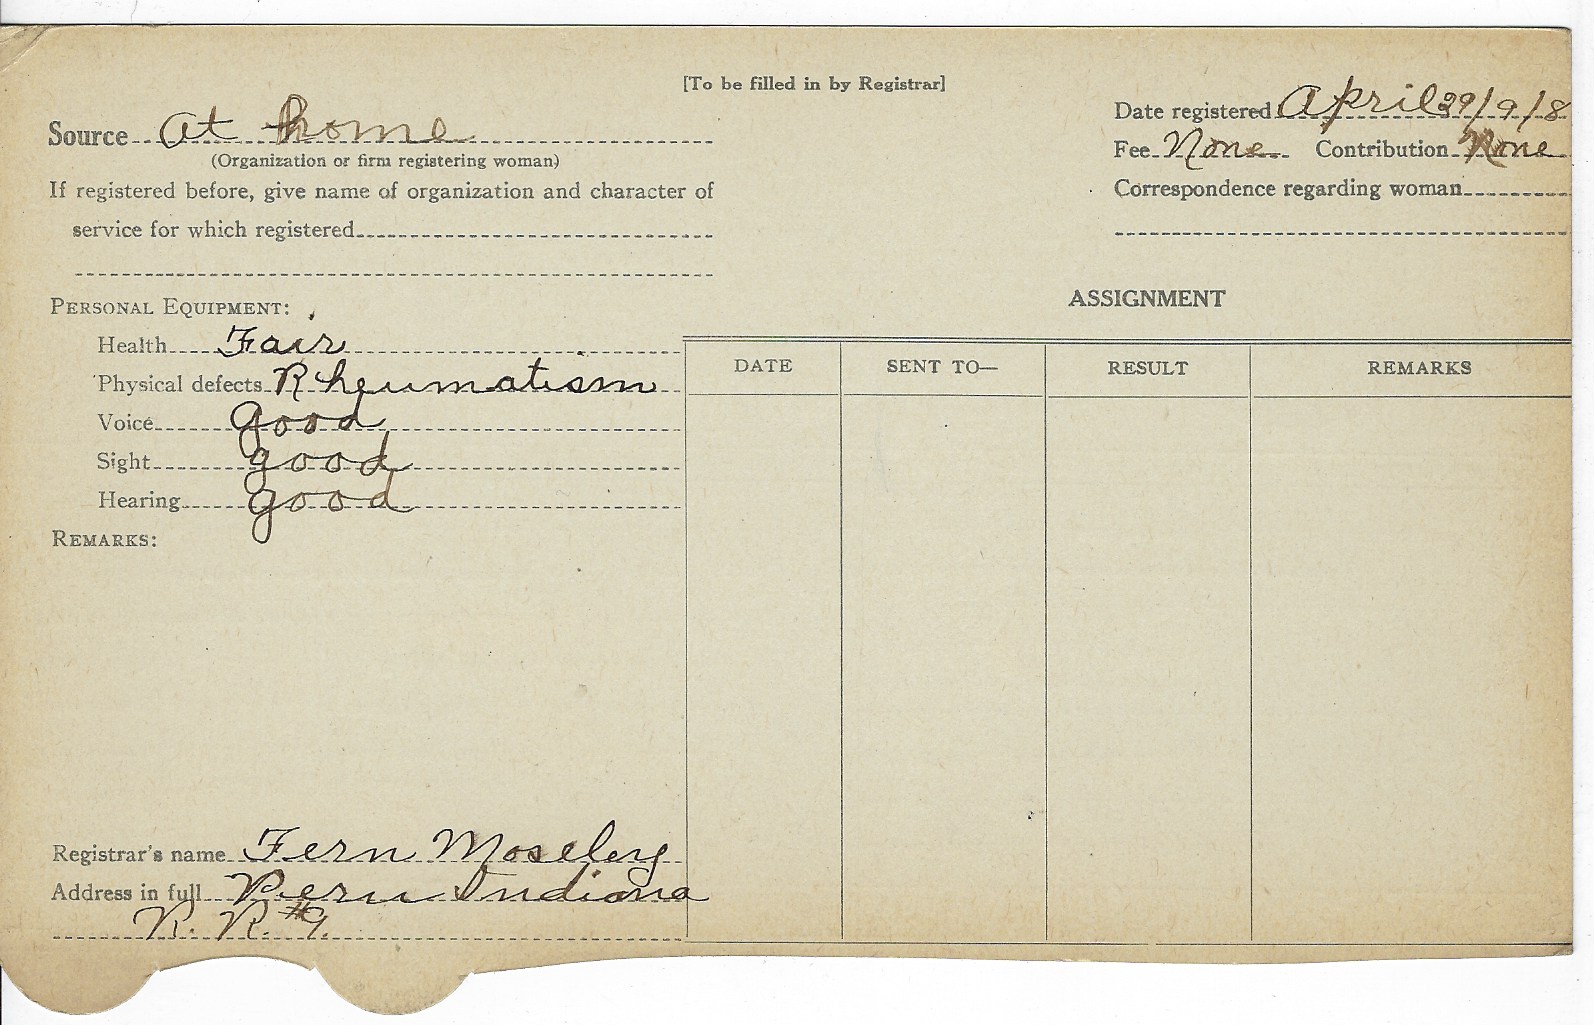 [To be filled in by Registrar]
Source At home
(Organization or firm registering woman)
If registered before, give name of organization and character of
service for which registered
Date registered April 29/9/8
Fee None Contribution None
Correspondence regarding woman
PERSONAL EQUIPMENT:
Health Fair
Physical defects Rheumatism
Voice good
Sight good
Hearing good
REMARKS:
ASSIGNMENT
DATE SENT TO— RESULT REMARKS
Registrar's name Fern Moseley
Address in full Peru Indiana
R. R. #9.